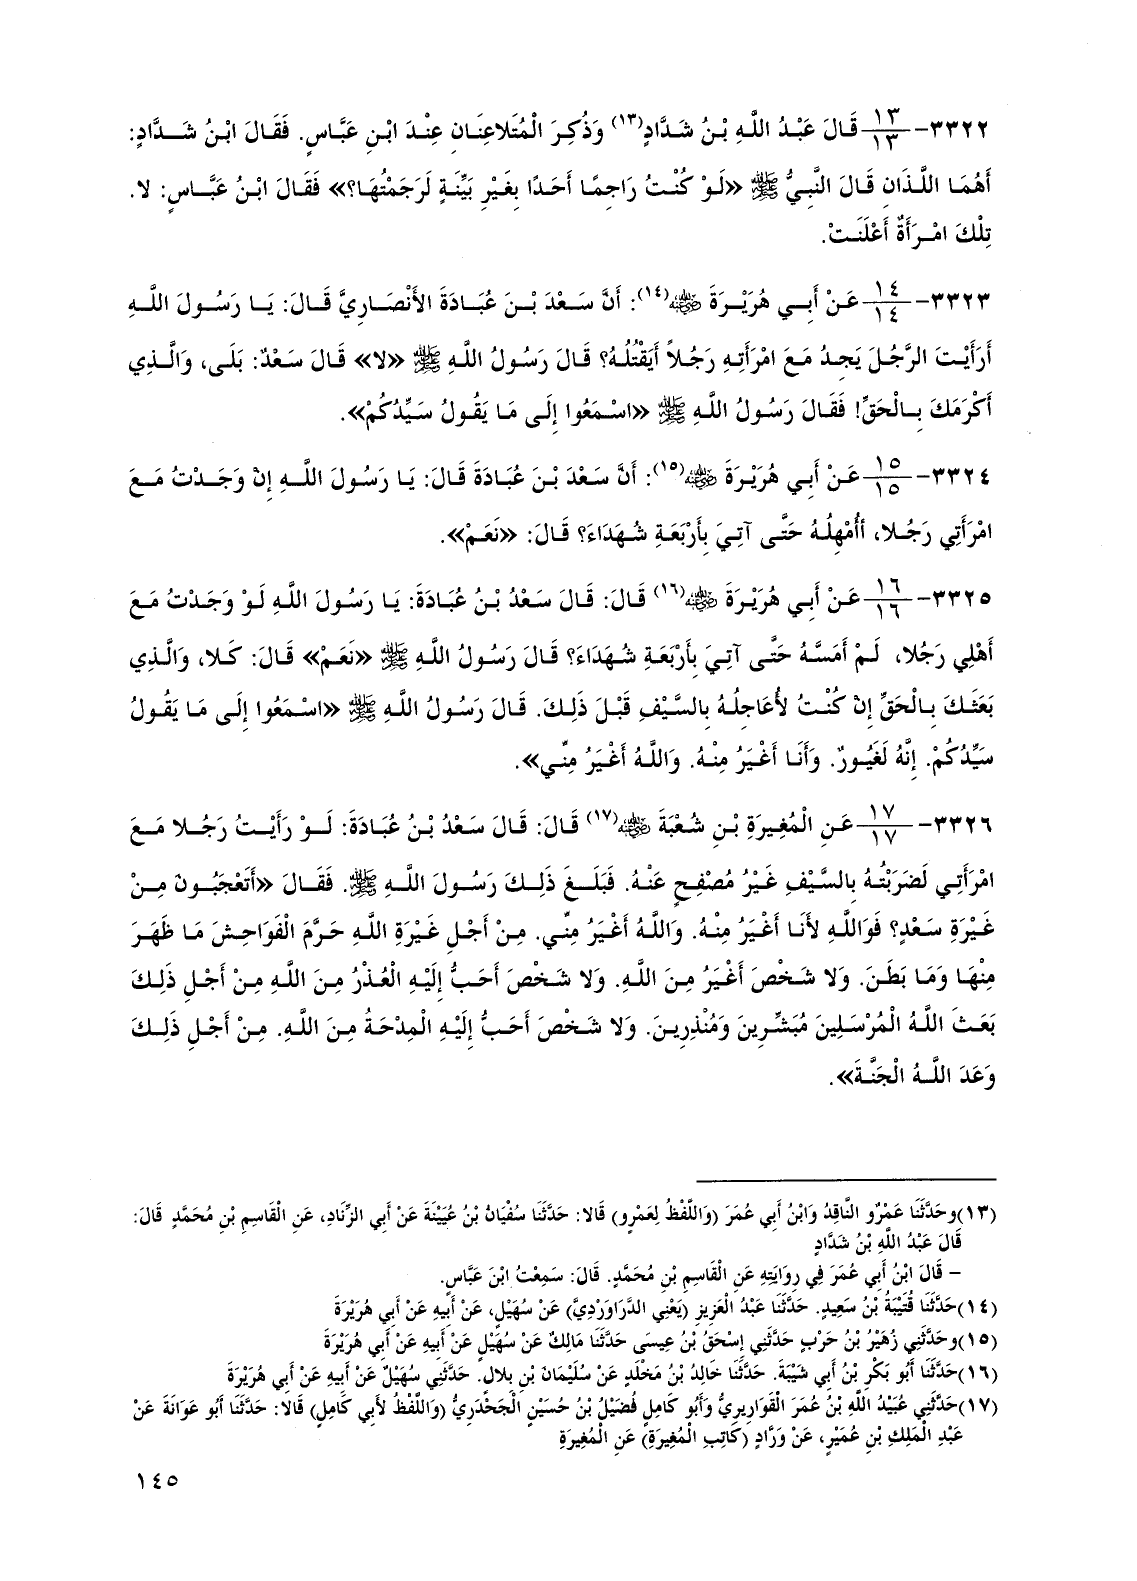 ٣٣٢٢- ١٣/١٣ قَالَ عَبْدُ اللَّهِ بْنُ شَدَّادٍ(١٣) وَذُكِرَ الْمُتَلاعِنَانِ عِنْدَ ابْنِ عَبَّاسٍ. فَقَالَ ابْنُ شَدَّادٍ:
أَهُمَا اللَّذَانِ قَالَ النَّبِيُّ ﷺ «لَوْ كُنْتُ رَاجِمًا أَحَدًا بِغَيْرِ بَيِّنَةٍ لَرَجَمْتُهَا؟» فَقَالَ ابْنُ عَبَّاسٍ: لا.
تِلْكَ امْرَأَةٌ أَعْلَنَتْ.
٣٣٢٣- ١٤/١٤ عَنْ أَبِي هُرَيْرَةَ ﷺ(١٤): أَنَّ سَعْدَ بْنَ عُبَادَةَ الأَنْصَارِيَّ قَالَ: يَا رَسُولَ اللَّهِ
أَرَأَيْتَ الرَّجُلَ يَجِدُ مَعَ امْرَأَتِهِ رَجُلاً أَيَقْتُلُهُ؟ قَالَ رَسُولُ اللَّهِ ﷺ «لا» قَالَ سَعْدٌ: بَلَى، وَالَّذِي
أَكْرَمَكَ بِالْحَقِّ! فَقَالَ رَسُولُ اللَّهِ ﷺ «اسْمَعُوا إِلَى مَا يَقُولُ سَيِّدُكُمْ».
٣٣٢٤- ١٥/١٥ عَنْ أَبِي هُرَيْرَةَ رضي الله عنه(١٥): أَنَّ سَعْدَ بْنَ عُبَادَةَ قَالَ: يَا رَسُولَ اللَّهِ إِنْ وَجَدْتُ مَعَ
امْرَأَتِي رَجُلا، أَأُمْهِلُهُ حَتَّى آتِيَ بِأَرْبَعَةِ شُهَدَاءَ؟ قَالَ: «نَعَمْ».
٣٣٢٥- ١٦/١٦ عَنْ أَبِي هُرَيْرَةَ رضي الله عنه(١٦) قَالَ: قَالَ سَعْدُ بْنُ عُبَادَةَ: يَا رَسُولَ اللَّهِ لَوْ وَجَدْتُ مَعَ
أَهْلِي رَجُلا، لَمْ أَمَسَّهُ حَتَّى آتِيَ بِأَرْبَعَةِ شُهَدَاءَ؟ قَالَ رَسُولُ اللَّهِ ﷺ «نَعَمْ» قَالَ: كَلا، وَالَّذِي
بَعَثَكَ بِالْحَقِّ إِنْ كُنْتُ لأُعَاجِلُهُ بِالسَّيْفِ قَبْلَ ذَلِكَ. قَالَ رَسُولُ اللَّهِ ﷺ «اسْمَعُوا إِلَى مَا يَقُولُ
سَيِّدُكُمْ. إِنَّهُ لَغَيُورٌ. وَأَنَا أَغْيَرُ مِنْهُ. وَاللَّهُ أَغْيَرُ مِنِّي».
٣٣٢٦- ١٧/١٧ عَنِ الْمُغِيرَةِ بْنِ شُعْبَةَ رضي الله عنه(١٧) قَالَ: قَالَ سَعْدُ بْنُ عُبَادَةَ: لَوْ رَأَيْتُ رَجُلا مَعَ
امْرَأَتِي لَضَرَبْتُهُ بِالسَّيْفِ غَيْرُ مُصْفِحٍ عَنْهُ. فَبَلَغَ ذَلِكَ رَسُولَ اللَّهِ ﷺ. فَقَالَ «أَتَعْجَبُونَ مِنْ
غَيْرَةِ سَعْدٍ؟ فَوَاللَّهِ لأَنَا أَغْيَرُ مِنْهُ. وَاللَّهُ أَغْيَرُ مِنِّي. مِنْ أَجْلِ غَيْرَةِ اللَّهِ حَرَّمَ الْفَوَاحِشَ مَا ظَهَرَ
مِنْهَا وَمَا بَطَنَ. وَلا شَخْصَ أَغْيَرُ مِنَ اللَّهِ. وَلا شَخْصَ أَحَبُّ إِلَيْهِ الْعُذْرُ مِنَ اللَّهِ مِنْ أَجْلِ ذَلِكَ
بَعَثَ اللَّهُ الْمُرْسَلِينَ مُبَشِّرِينَ وَمُنْذِرِينَ. وَلا شَخْصَ أَحَبُّ إِلَيْهِ الْمِدْحَةُ مِنَ اللَّهِ. مِنْ أَجْلِ ذَلِكَ
وَعَدَ اللَّهُ الْجَنَّةَ».
(١٣)وحَدَّثَنَا عَمْرٌو النَّاقِدُ وَابْنُ أَبِي عُمَرَ (وَاللَّفْظُ لِعَمْرٍو) قَالا: حَدَّثَنَا سُفْيَانُ بْنُ عُيَيْنَةَ عَنْ أَبِي الزِّنَادِ، عَنِ الْقَاسِمِ بْنِ مُحَمَّدٍ قَالَ:
قَالَ عَبْدُ اللَّهِ بْنُ شَدَّادٍ
– قَالَ ابْنُ أَبِي عُمَرَ فِي رِوَايَتِهِ عَنِ الْقَاسِمِ بْنِ مُحَمَّدٍ. قَالَ: سَمِعْتُ ابْنَ عَبَّاسٍ.
(١٤)حَدَّثَنَا قُتَيْبَةُ بْنُ سَعِيدٍ. حَدَّثَنَا عَبْدُ الْعَزِيزِ (يَعْنِي الدَّرَاوَرْدِيَّ) عَنْ سُهَيْلٍ، عَنْ أَبِيهِ عَنْ أَبِي هُرَيْرَةَ
(١٥)وحَدَّثَنِي زُهَيْرُ بْنُ حَرْبٍ حَدَّثَنِي إِسْحَقُ بْنُ عِيسَى حَدَّثَنَا مَالِكٌ عَنْ سُهَيْلٍ عَنْ أَبِيهِ عَنْ أَبِي هُرَيْرَةَ
(١٦)حَدَّثَنَا أَبُو بَكْرِ بْنُ أَبِي شَيْبَةَ. حَدَّثَنَا خَالِدُ بْنُ مَخْلَدٍ عَنْ سُلَيْمَانَ بْنِ بِلالٍ. حَدَّثَنِي سُهَيْلٌ عَنْ أَبِيهِ عَنْ أَبِي هُرَيْرَةَ
(١٧)حَدَّثَنِي عُبَيْدُ اللَّهِ بْنُ عُمَرَ الْقَوَارِيرِيُّ وَأَبُو كَامِلٍ فُضَيْلُ بْنُ حُسَيْنٍ الْجَحْدَرِيُّ (وَاللَّفْظُ لأَبِي كَامِلٍ) قَالا: حَدَّثَنَا أَبُو عَوَانَةَ عَنْ
عَبْدِ الْمَلِكِ بْنِ عُمَيْرٍ، عَنْ وَرَّادٍ (كَاتِبِ الْمُغِيرَةِ) عَنِ الْمُغِيرَةِ
١٤٥